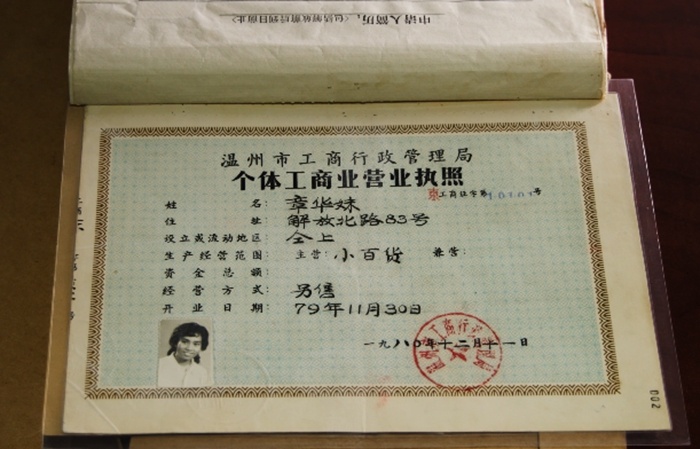 申请人简历:(包括解放前后到目前止)
温州市工商行政管理局
个体工商业营业执照
工商证字第 号
姓名:章华妹
住址:解放北路83号
设立或流动地区:仝上
生产经营范围:主营:小百货 兼营:
资金总额:
经营方式:另售
开业日期:79年11月30日
一九八〇年十二月十一日
温州市工商行政管理局
002